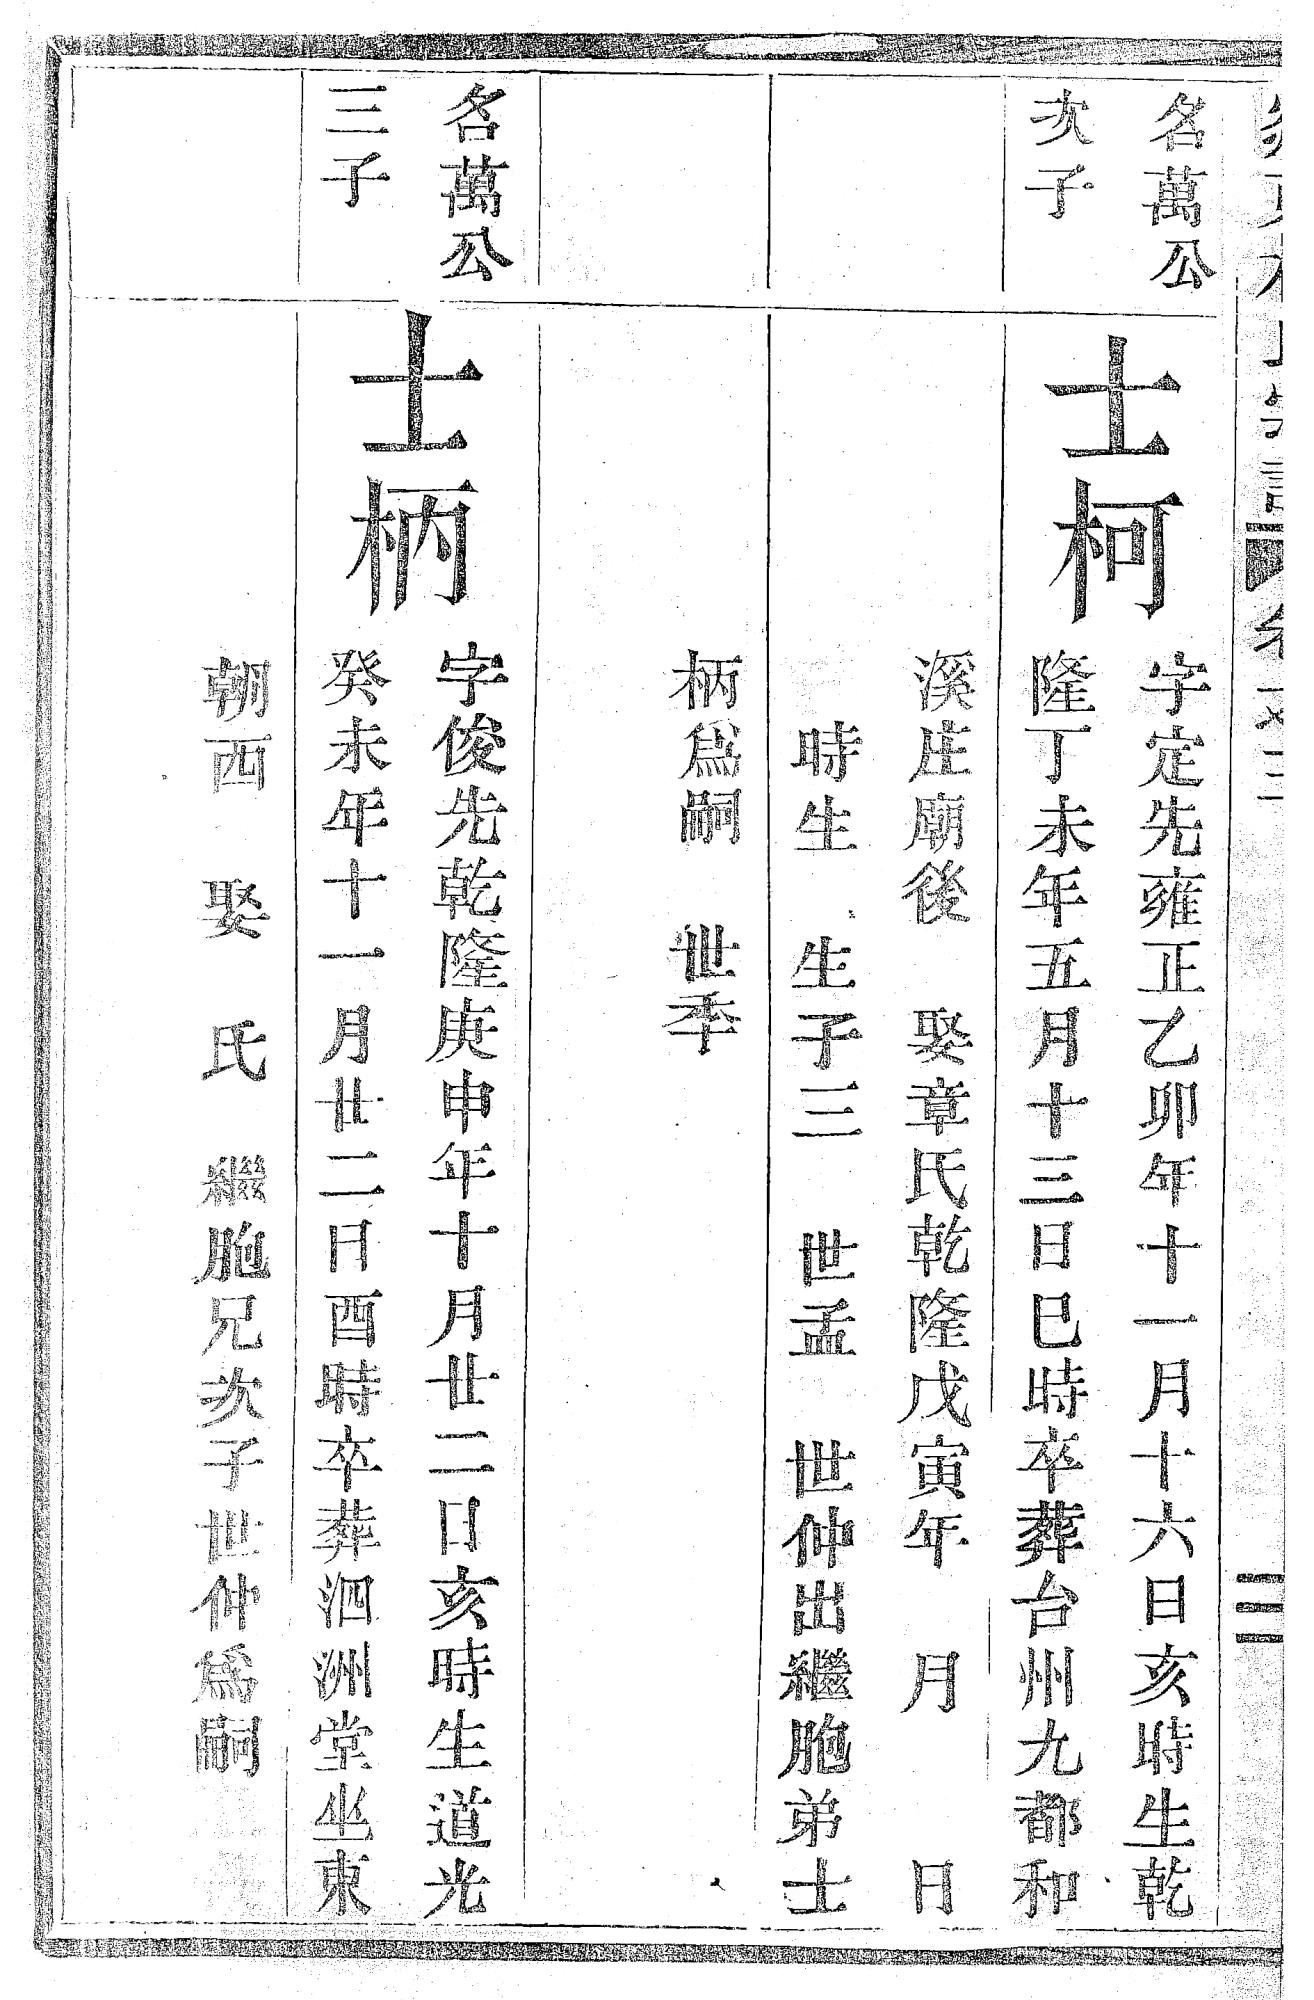 名萬公
次子
士柯
字定先雍正乙卯年十一月十六日亥時生乾
隆丁未年五月十三日巳時卒葬台州九都和
溪庄廟後　娶章氏乾隆戊寅年　月　　日
時生　生子三　世孟　世仲出繼胞弟士
柄爲嗣　世季
名萬公
三子
士柄
字俊先乾隆庚申年十月廿二日亥時生道光
癸未年十一月廿二日酉時卒葬泗洲堂坐東
朝西　娶　氏　繼胞兄次子世仲爲嗣